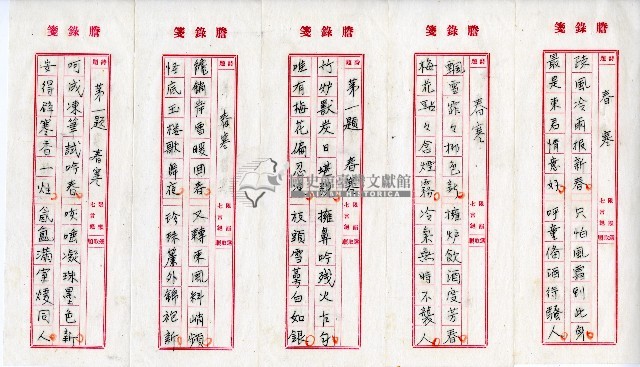 謄錄箋
詩題
春寒
陵風冷雨報新春 只怕風霜到此身
最是東君情意好 呼童備酒待騷人
謄錄箋
詩題
春寒
飄雪霏々柳色新 擁炉飲酒度芳春
梅花點々含煙霧 冷氣無時不襲人
謄錄箋
詩題
第一題 春寒
竹炉獸炭日堪親 擁鼻吟殘火乍
唯有梅花偏忍 枝頭雪蕚白如銀
謄錄箋
詩題
春寒
院鎖宵雪暖回春 又轉東風料峭
怪底玉樓歌舞夜 玲珠簾外錦袍新
謄錄箋
詩題
第一題 春寒
呵成凍筆試吟春 吹唾凝珠墨色新
安得辟寒香一炷 氤氳滿室煖同人
國史館臺灣文獻館
TAIWAN HISTORICA